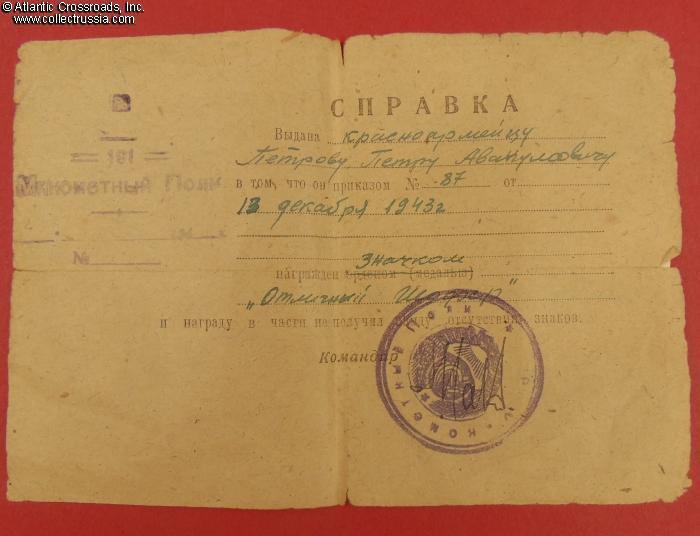 © Atlantic Crossroads, Inc.
www.collectrussia.com
СПРАВКА
181
Минометный Полк
194 г.
№
Выдана красноармейцу
Петрову Петру Авакумовичу
в том, что он приказом № 87 от
13 декабря 1943г
значком
награжден орденом (медалью)
„Отличный
и награду в части не получил ввиду отсутствия знаков.
Командир
Минометный Полк